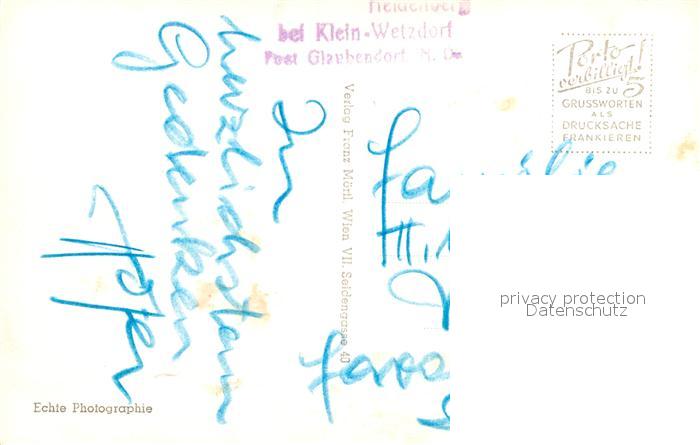 Heldenberg
bei Klein-Wetzdorf
Post Glaubendorf, N. Oe.
Porto
verbilligt!
BIS ZU
5
GRUSSWORTEN
ALS
DRUCKSACHE
FRANKIEREN
Verlag Franz Mörtl, Wien VII. Seidengasse 40
In
herzlichstem
Gedenken
Familie
privacy protection
Datenschutz
Echte Photographie